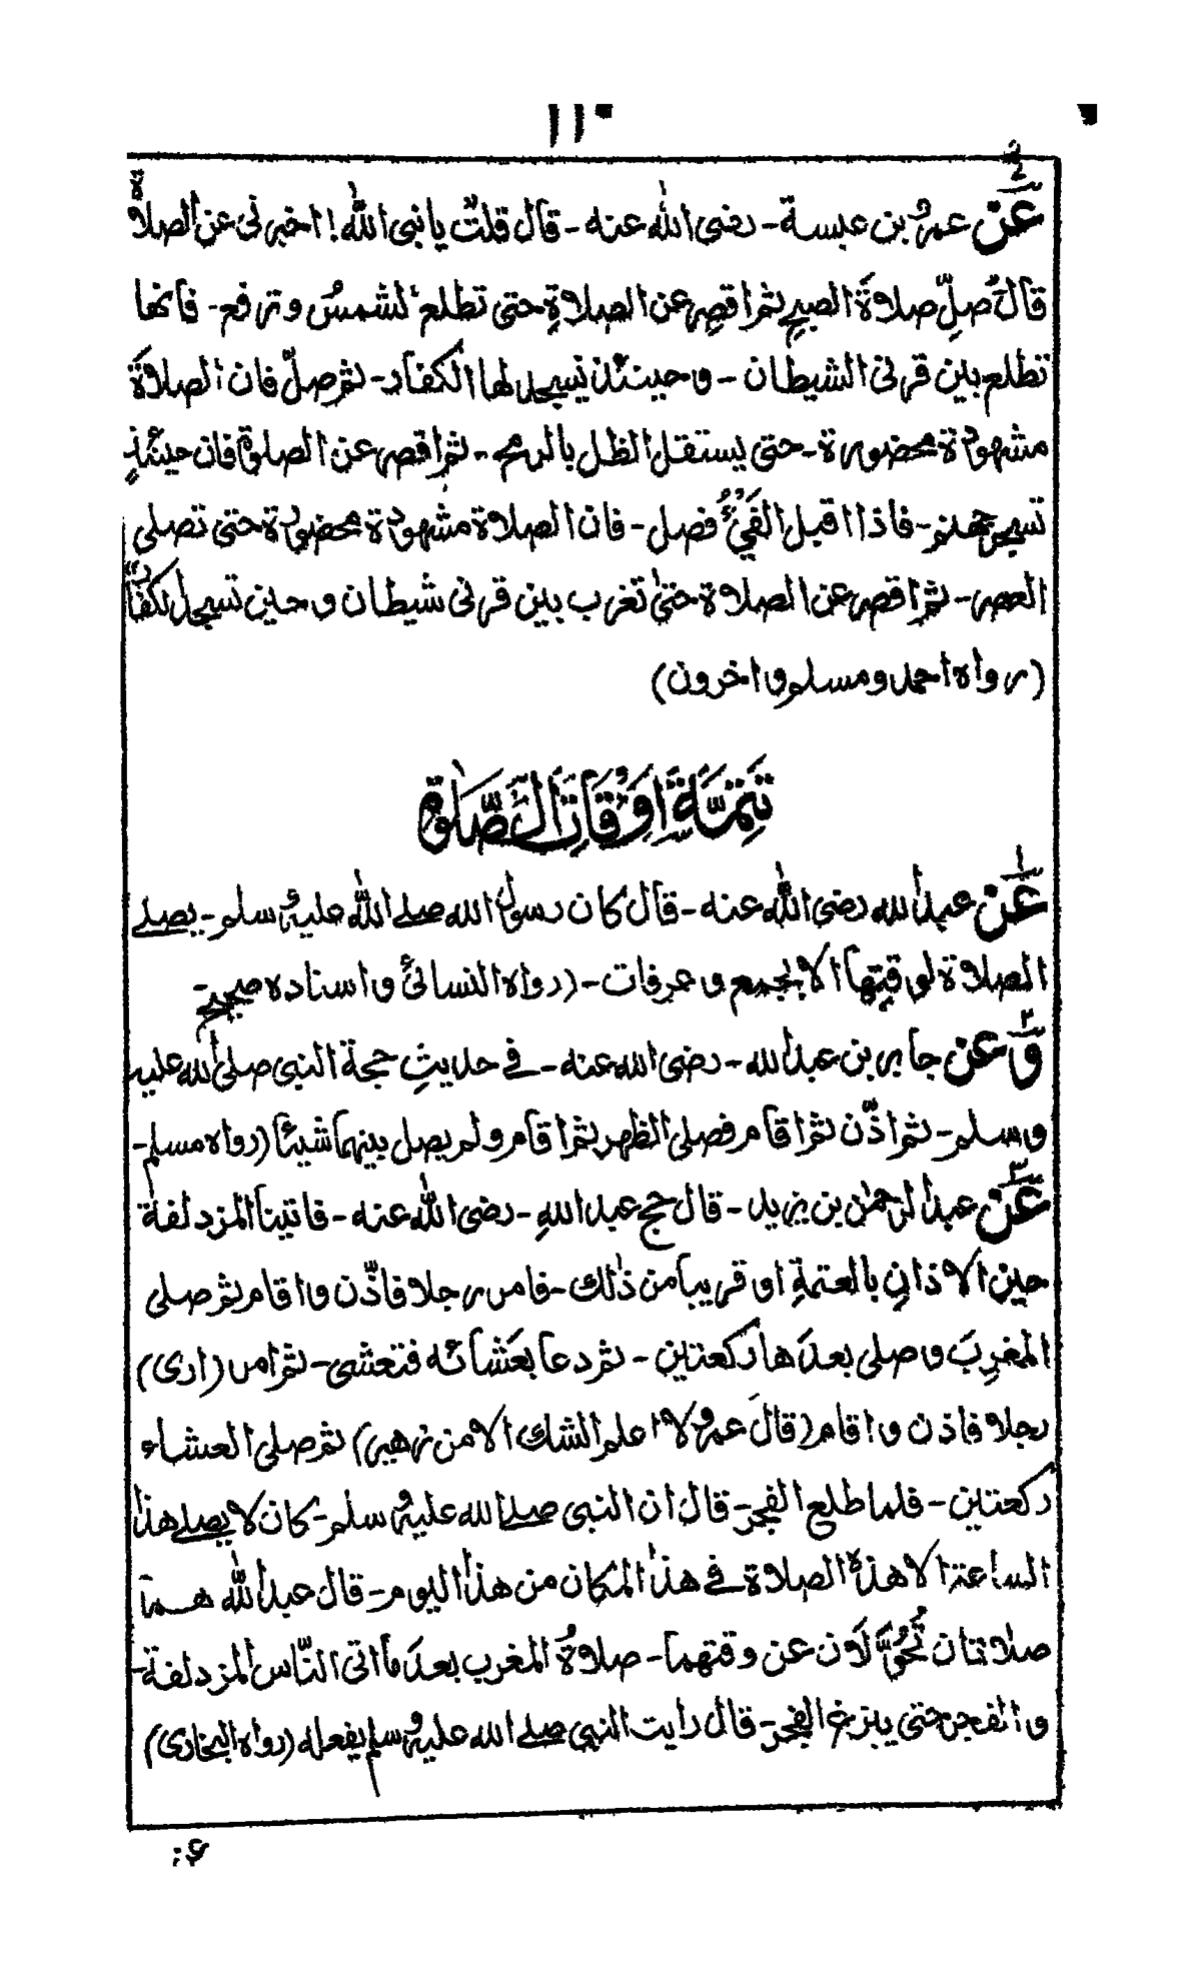 ١١٠
عن عمرو بن عبسة - رضی الله عنه - قال قلت یا نبی الله! اخبرنی عن الصلاة
قال صلِّ صلاةَ الصبحِ ثم اقصِر عن الصلاةِ حتی تطلع الشمسُ و ترفع - فانها
تطلع بین قرنی الشیطان - و حینئذن یسجد لها الکفار - ثم صلِّ فان الصلاةَ
مشهودة محضورة - حتی یستقل الظل بالرمح - ثم اقصر عن الصلوٰة فان حینئذٍ
تسجر جهنم - فاذا اقبل الفَیْئُ فصل - فان الصلاة مشهودة محضورة حتی تصلی
العصر - ثم اقصر عن الصلاة حتیٰ تغرب بین قرنی شیطان و حین تسجد لکفار
(رواه احمد و مسلم و اخرون)
تَتِمَّةُ اَوْقَاتِ الصَّلٰوةِ
١ عَن عبد الله رضی الله عنه - قال کان رسول الله صلے الله علیہ و سلم - یصلے
الصلاة لوقتِها الا بجمع و عرفات - (رواه النسائیُ و اسناده صحیح -
٢ وَ عن جابر بن عبد الله - رضی الله عنه - فے حدیثِ حجة النبی صلی الله علیه
و سلم - ثم اذّن ثم اقام فصلی الظهر ثم اقام و لم یصل بینهما شیئا (رواه مسلم -
٣ عَن عبد الرحمٰن بن یزید - قال حج عبد اللهِ - رضی الله عنه - فاتینا المزدلفة
حین الاذانِ بالعتمةِ او قریبا من ذٰلك - فامر رجلا فاذّن و اقام ثم صلی
المغربَ و صلی بعدَها رکعتین - ثم دعا بعَشائه فتعشی - ثم امر (اری)
رجلا فاذن و اقام (قالَ عمرو لا اعلم الشك الا من زهیر) ثم صلی العشاء
رکعتین - فلما طلع الفجر - قال ان النبی صلے الله علیہ و سلم - کان لا یصلے هذه
الساعة الا هذه الصلاة فے هذا المکان من هذا الیوم - قال عبد الله هما
صلاتان تُحوَّلان عن وقتهما - صلاةُ المغرب بعدَ ما اتی النّاس المزدلفة -
و الفجر حتی یبزغ الفجر - قال رایت النبی صلے الله علیہ و سلم یفعله (رواه البخاری)